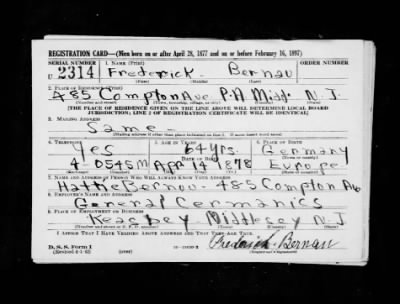 REGISTRATION CARD—(Men born on or after April 28, 1877 and on or before February 16, 1897)
SERIAL NUMBER 1. NAME (Print) ORDER NUMBER
U 2314 Frederick - Bernau
2. PLACE OF RESIDENCE (Print)
485 Compton Ave P.A Midd. N.J.
[THE PLACE OF RESIDENCE GIVEN ON THE LINE ABOVE WILL DETERMINE LOCAL BOARD
JURISDICTION; LINE 2 OF REGISTRATION CERTIFICATE WILL BE IDENTICAL]
3. MAILING ADDRESS
Same -
4. TELEPHONE 5. AGE IN YEARS 6. PLACE OF BIRTH
Yes 64 yrs. Germany
DATE OF BIRTH
4-0545M Apr 14 1878 Europe
7. NAME AND ADDRESS OF PERSON WHO WILL ALWAYS KNOW YOUR ADDRESS
Hattie Bernau - 485 Compton Ave
8. EMPLOYER'S NAME AND ADDRESS
General Cermanics
9. PLACE OF EMPLOYMENT OR BUSINESS
Keasbey Middlesex N.J
I AFFIRM THAT I HAVE VERIFIED ABOVE ANSWERS AND THAT THEY ARE TRUE.
D. S. S. Form 1
Frederick Bernau